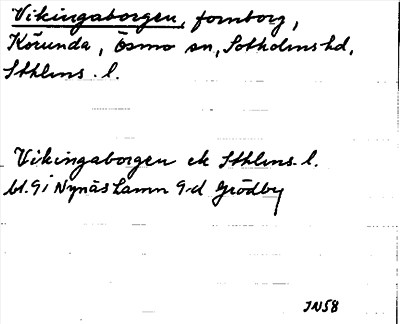 Vikingaborgen, fornborg,
Körunda, Ösmo sn, Sotholms hd,
Sthlms. l.
Vikingaborgen ek Sthlms. l.
bl. 9 i Nynäshamn 9 d Grödby
IN58